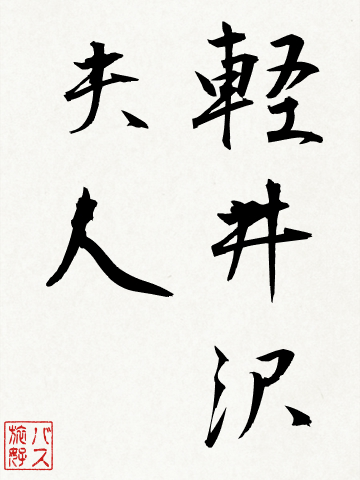 軽井沢
夫人
バス
旅好